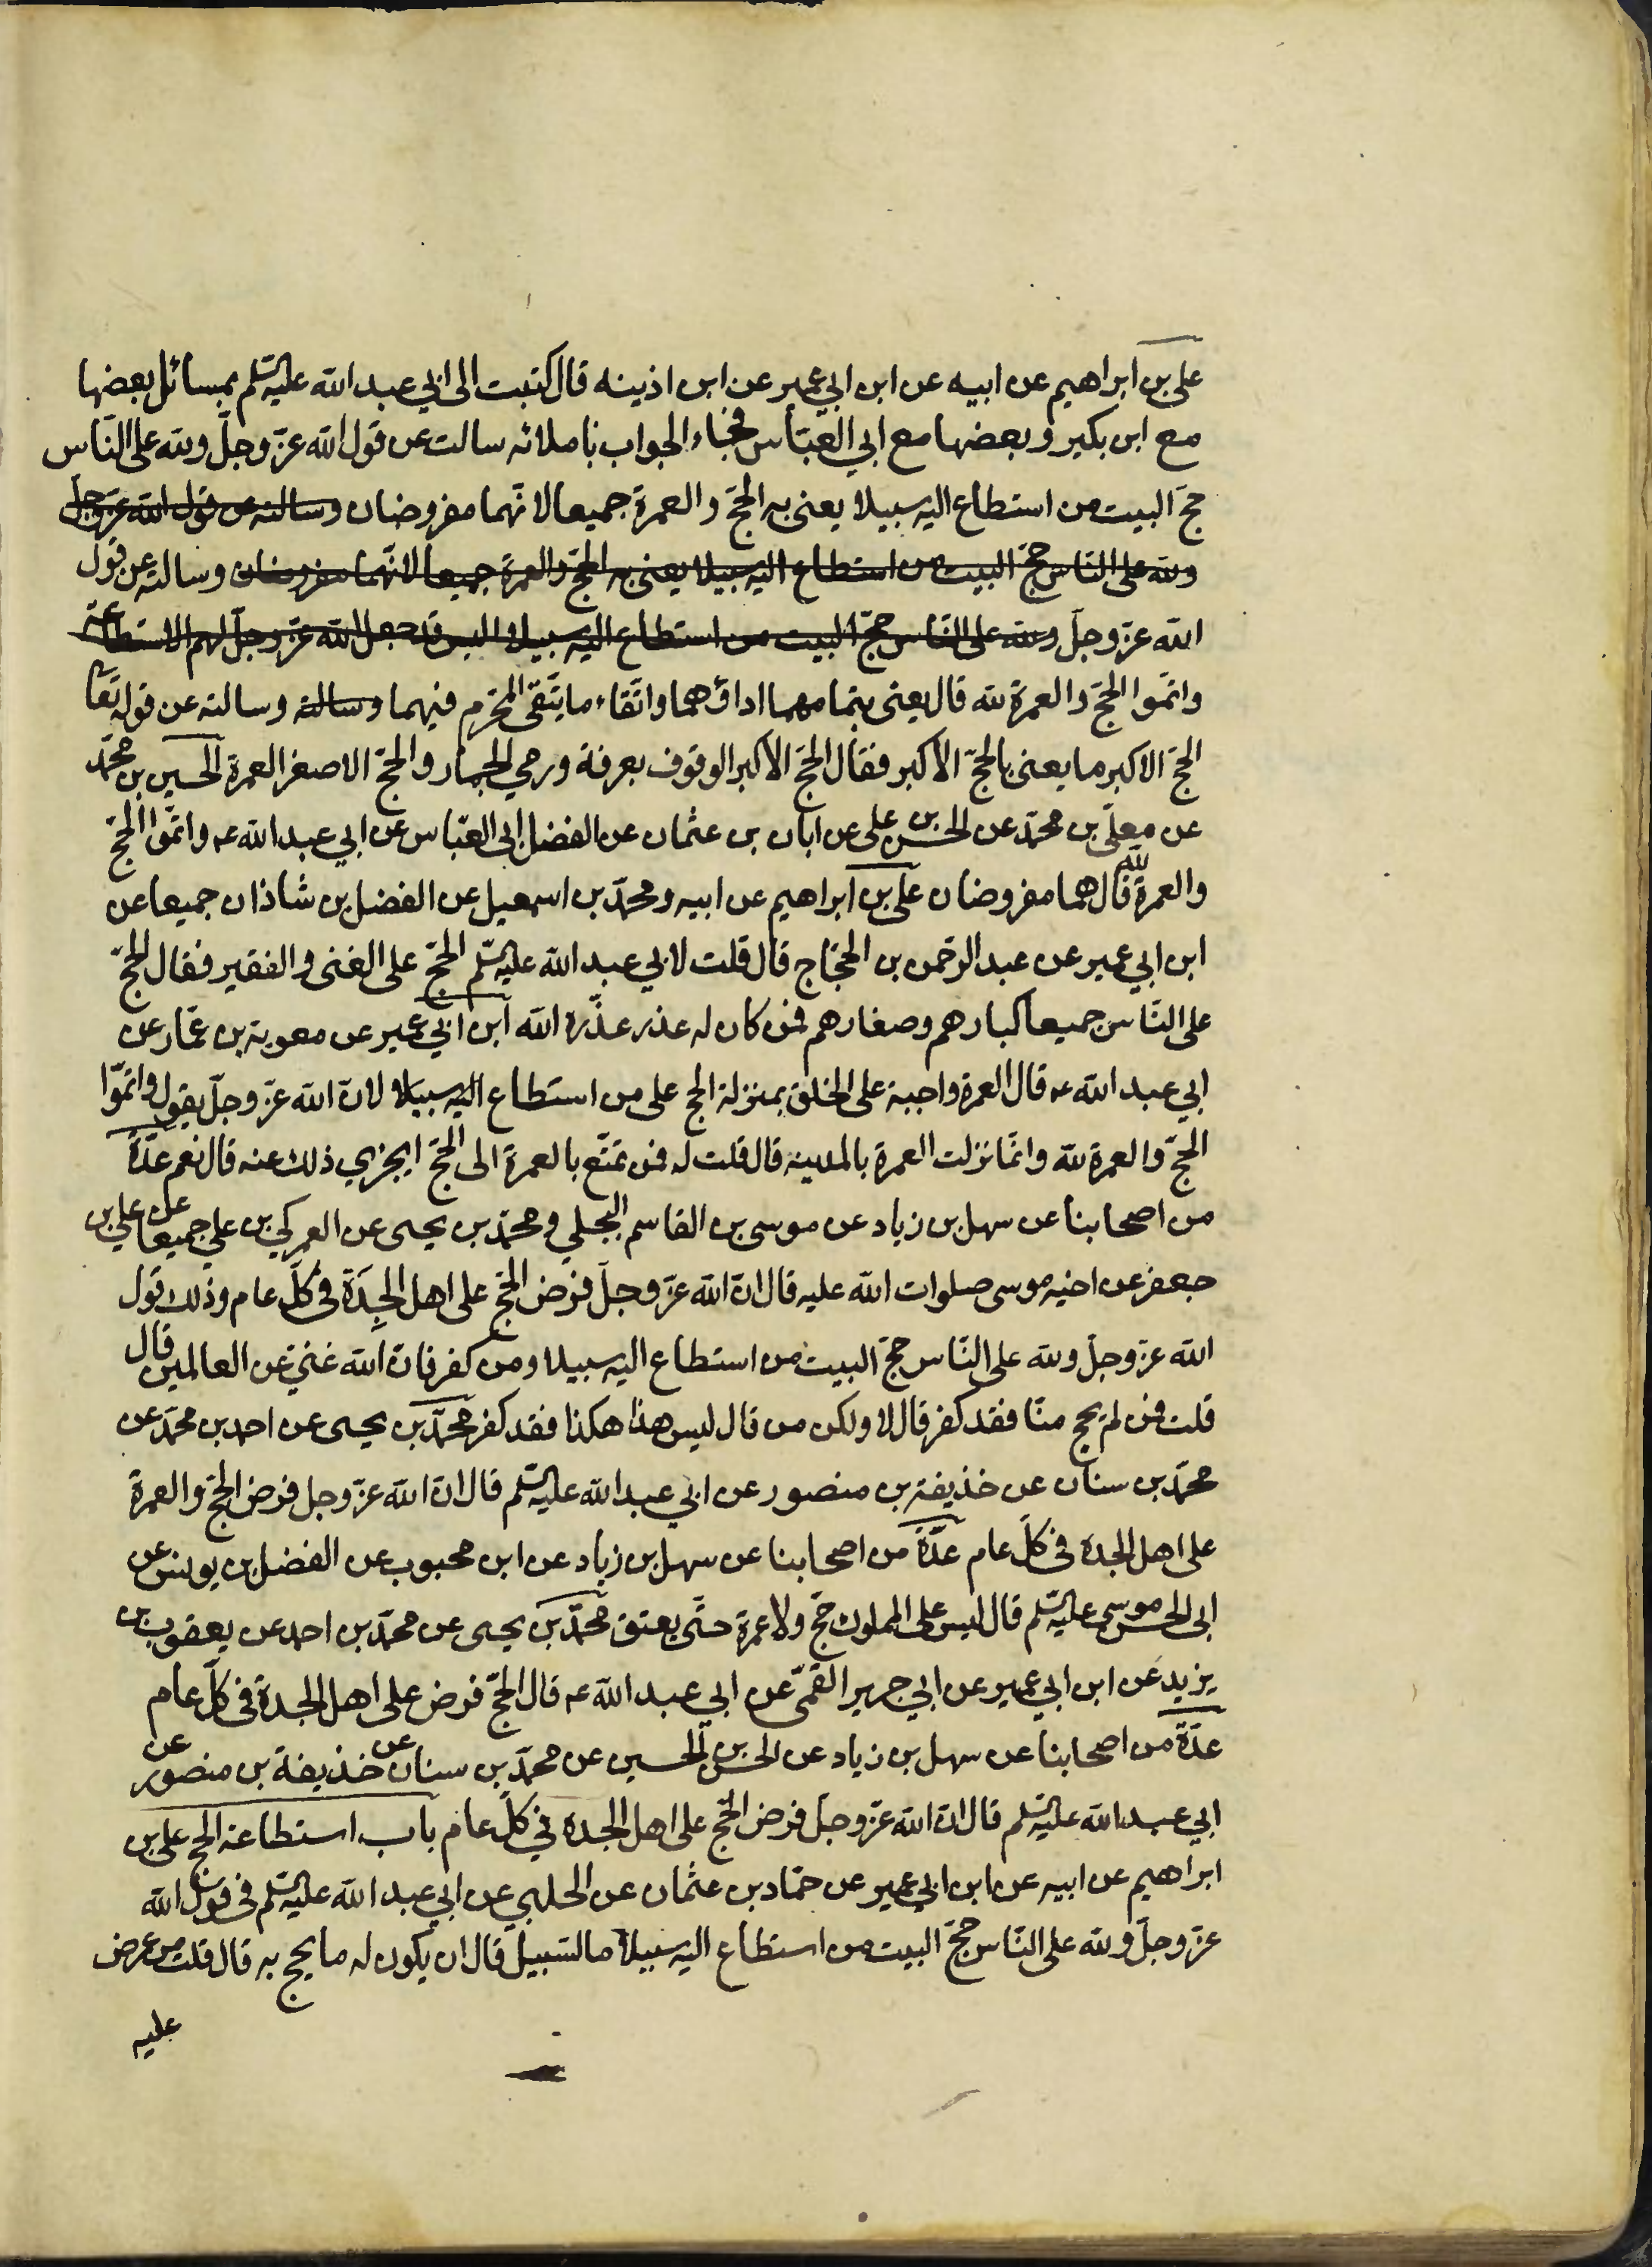 علي بن ابراهيم عن ابيه عن ابن ابي عمير عن ابن اذينه قال كتبت الى ابي عبد الله عليه السلم بمسائل بعضها
مع ابن بكير وبعضها مع ابي العبّاس فجاء الجواب باملائه سالت عن قول الله عزّ وجلّ ولله على النّاس
حجّ البيت من استطاع اليه سبيلا يعنى به الحجّ والعمرة جميعا لانّهما مفروضان وسالته عن قول الله عزّ وجلّ
ولله على النّاس حجّ البيت من استطاع اليه سبيلا يعنى به الحجّ والعمرة جميعا لانّهما مفروضان وسالته عن قول
الله عزّ وجلّ ولله على النّاس حجّ البيت من استطاع اليه سبيلا اليس قد جعل الله عزّ وجلّ لهم الاستطاعة
واتمّوا الحجّ والعمرة لله قال يعنى بتمامهما اداؤهما واتّقاء ما يتّقى المحرم فيهما وسالته وسالته عن قوله تعا
الحجّ الاكبر ما يعنى بالحجّ الاكبر فقال الحجّ الاكبر الوقوف بعرفة ورمي الجمار والحجّ الاصغر العمرة الحسين بن محمّد
عن معلّى بن محمّد عن الحسن بن على عن ابان بن عثمان عن الفضل ابى العبّاس عن ابي عبد الله عه واتمّوا الحجّ
والعمرة لله قال هما مفروضان على بن ابراهيم عن ابيه ومحمّد بن اسمعيل عن الفضل بن شاذان جميعا عن
ابن ابي عمير عن عبد الرحمن بن الحجّاج قال قلت لابي عبد الله عليه السّلم الحجّ على الغنى والفقير فقال الحجّ
على النّاس جميعا كبارهم وصغارهم فمن كان له عذر عذّره الله ابن ابي عمير عن معوية بن عمّار عن
ابي عبد الله عه قال العمرة واجبة على الخلق بمنزلة الحج على من استطاع اليه سبيلا لانّ الله عزّ وجلّ يقول واتمّوا
الحجّ والعمرة لله وانّما نزلت العمرة بالمدينه قال قلت له فمن تمتّع بالعمرة الى الحجّ ايجزي ذلك عنه قال نعم عدّة
من اصحابنا عن سهل بن زياد عن موسى بن القاسم البجلي ومحمّد بن يحيى عن العمركي بن علي جميعا عن علي بن
جعفر عن اخيه موسى صلوات الله عليه قال انّ الله عزّ وجلّ فرض الحجّ على اهل الجِدَة فى كلّ عام وذلك قول
الله عزّ وجلّ ولله على النّاس حجّ البيت من استطاع اليه سبيلا ومن كفر فانّ الله غنيّ عن العالمين قال
قلت فمن لم يحج منّا فقد كفر قال لا ولكن من قال ليس هذا هكذا فقد كفر محمّد بن يحيى عن احمد بن محمّد عن
محمّد بن سنان عن خذيفة بن منصور عن ابي عبد الله عليه السّلم قال انّ الله عزّ وجل فرض الحجّ والعمرة
على اهل الجدة فى كلّ عام عدّة من اصحابنا عن سهل بن زياد عن ابن محبوب عن الفضل بن يونس عن
ابى الحسن موسى عليه السّلم قال ليس على المملوك حجّ ولا عمرة حتّى يعتق محمّد بن يحيى عن محمّد بن احمد عن يعقوب بن
يزيد عن ابن ابي عمير عن ابي جرير القمّى عن ابي عبد الله عه قال الحجّ فرض على اهل الجدة فى كلّ عام
عدّة من اصحابنا عن سهل بن زياد عن الحسن بن الحسين عن محمّد بن سنان عن خذيفة بن منصور عن
ابي عبد الله عليه السّلم قال انّ الله عزّ وجلّ فرض الحجّ على اهل الجدة في كلّ عام باب استطاعة الحج على بن
ابراهيم عن ابيه عن ابن ابي عمير عن حمّاد بن عثمان عن الحلبي عن ابي عبد الله عليه السّلم فى قول الله
عزّ وجلّ ولله على النّاس حجّ البيت من استطاع اليه سبيلا ما السّبيل قال ان يكون له ما يحج به قال قلت من عرض
عليه